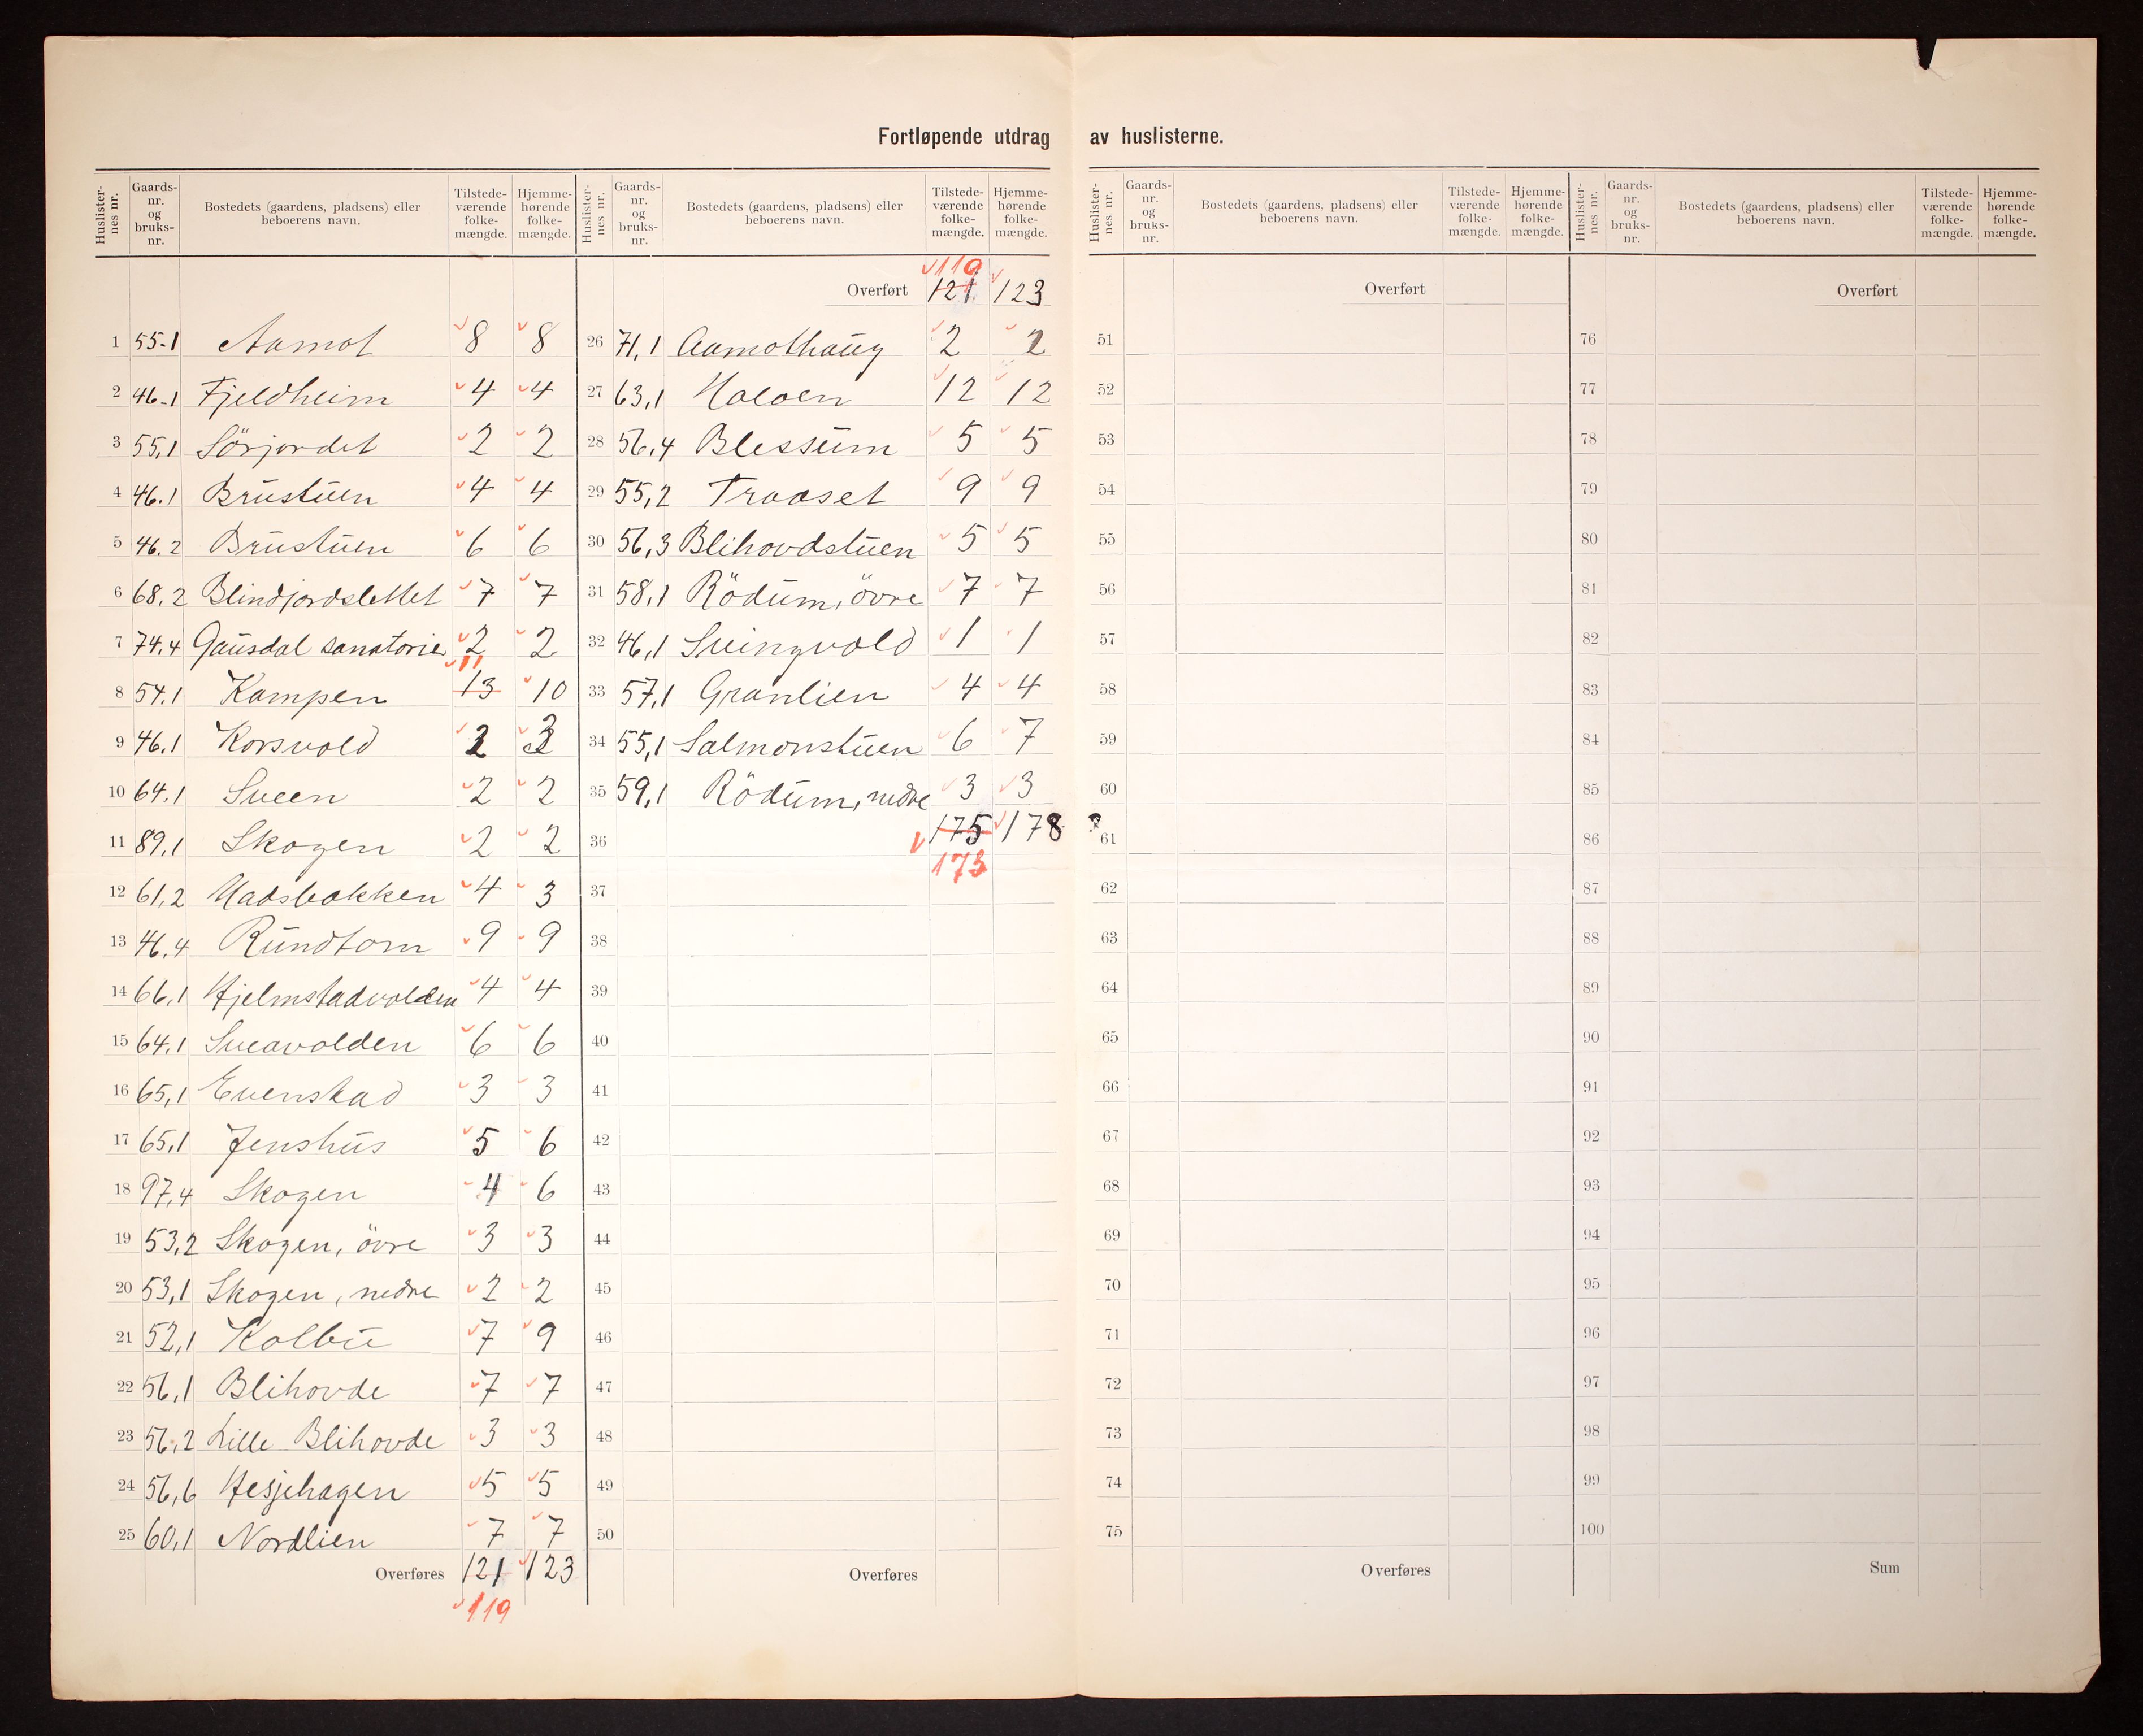 Fortløpende utdrag av huslisterne.
Huslisternes nr. Gaards-nr. og bruks-nr. Bostedets (gaardens, pladsens) eller beboerens navn. Tilstedeværende folkemængde. Hjemmehørende folkemængde.
1 55-1 Aamot 8 8
2 46-1 Fjeldheim 4 4
3 55,1 Sörjordet 2 2
4 46.1 Brustuen 4 4
5 46.2 Brustuen 6 6
6 68.2 Blindjordslettet 7 7
7 74.4 Gausdal sanatorie 2 2
11
8 54.1 Kampen 13 10
9 46.1 Korsvold
10 64.1 Sveen 2 2
11 89,1 Skogen 2 2
12 61,2 Madsbakken 4 3
13 46.4 Rundtom 9 9
14 66,1 Hjelmstadvolden 4 4
15 64,1 Sveavolden 6 6
16 65,1 Evenstad 3 3
17 65,1 Jenshus 5 6
18 97,4 Skogen 4 6
19 53,2 Skogen, övre 3 3
20 53,1 Skogen, nedre 2 2
21 52,1 Kolbu 7 9
22 56,1 Blihovde 7 7
23 56,2 Lille Blihovde 3 3
24 56,6 Hesjehagen 5 5
25 60,1 Nordlien 7 7
Overføres 121 123
119
Huslisternes nr. Gaards-nr. og bruks-nr. Bostedets (gaardens, pladsens) eller beboerens navn. Tilstedeværende folkemængde. Hjemmehørende folkemængde.
119
Overført 121 123
26 71,1 Aamothaug 2 2
27 63,1 Holoen 12 12
28 56,4 Blessum 5 5
29 55,2 Traaset 9 9
30 56,3 Blihovdstuen 5 5
31 58,1 Rödum, övre 7 7
32 46,1 Svingvold 1 1
33 57,1 Granlien 4 4
34 55,1 Salmonstuen 6 7
35 59,1 Rödum, nedre 3 3
36 175 178 ?
173
37
38
39
40
41
42
43
44
45
46
47
48
49
50
Overføres
Huslisternes nr. Gaards-nr. og bruks-nr. Bostedets (gaardens, pladsens) eller beboerens navn. Tilstedeværende folkemængde. Hjemmehørende folkemængde.
Overført
51
52
53
54
55
56
57
58
59
60
61
62
63
64
65
66
67
68
69
70
71
72
73
74
75
Overføres
Huslisternes nr. Gaards-nr. og bruks-nr. Bostedets (gaardens, pladsens) eller beboerens navn. Tilstedeværende folkemængde. Hjemmehørende folkemængde.
Overført
76
77
78
79
80
81
82
83
84
85
86
87
88
89
90
91
92
93
94
95
96
97
98
99
100
Sum